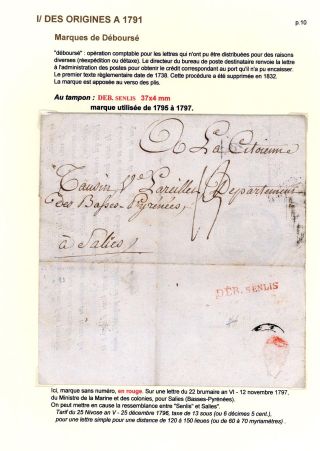 I/ DES ORIGINES A 1791
p.10
Marques de Déboursé
"déboursé" : opération comptable pour les lettres qui n'ont pu être distribuées pour des raisons
diverses (réexpédition ou détaxe). Le directeur du bureau de poste destinataire renvoie la lettre
à l'administration des postes pour obtenir le crédit correspondant au port qu'il n'a pu encaisser.
Le premier texte règlementaire date de 1738. Cette procédure a été supprimée en 1832.
La marque est apposée au verso des plis.
Au tampon : DEB. SENLIS 37x4 mm
marque utilisée de 1795 à 1797.
A La Citoienne
Taudin, Ve Lareillet Departement
des Basses-Pyrénées,
à Salies
DÉB. SENLIS
Ici, marque sans numéro, en rouge. Sur une lettre du 22 brumaire an VI - 12 novembre 1797,
du Ministre de la Marine et des colonies, pour Salies (Basses-Pyrénées).
On peut mettre en cause la ressemblance entre "Senlis" et "Salies".
Tarif du 25 Nivose an V - 25 décembre 1796, taxe de 13 sous (ou 6 décimes 5 cent.),
pour une lettre simple pour une distance de 120 à 150 lieues (ou de 60 à 70 myriamètres)